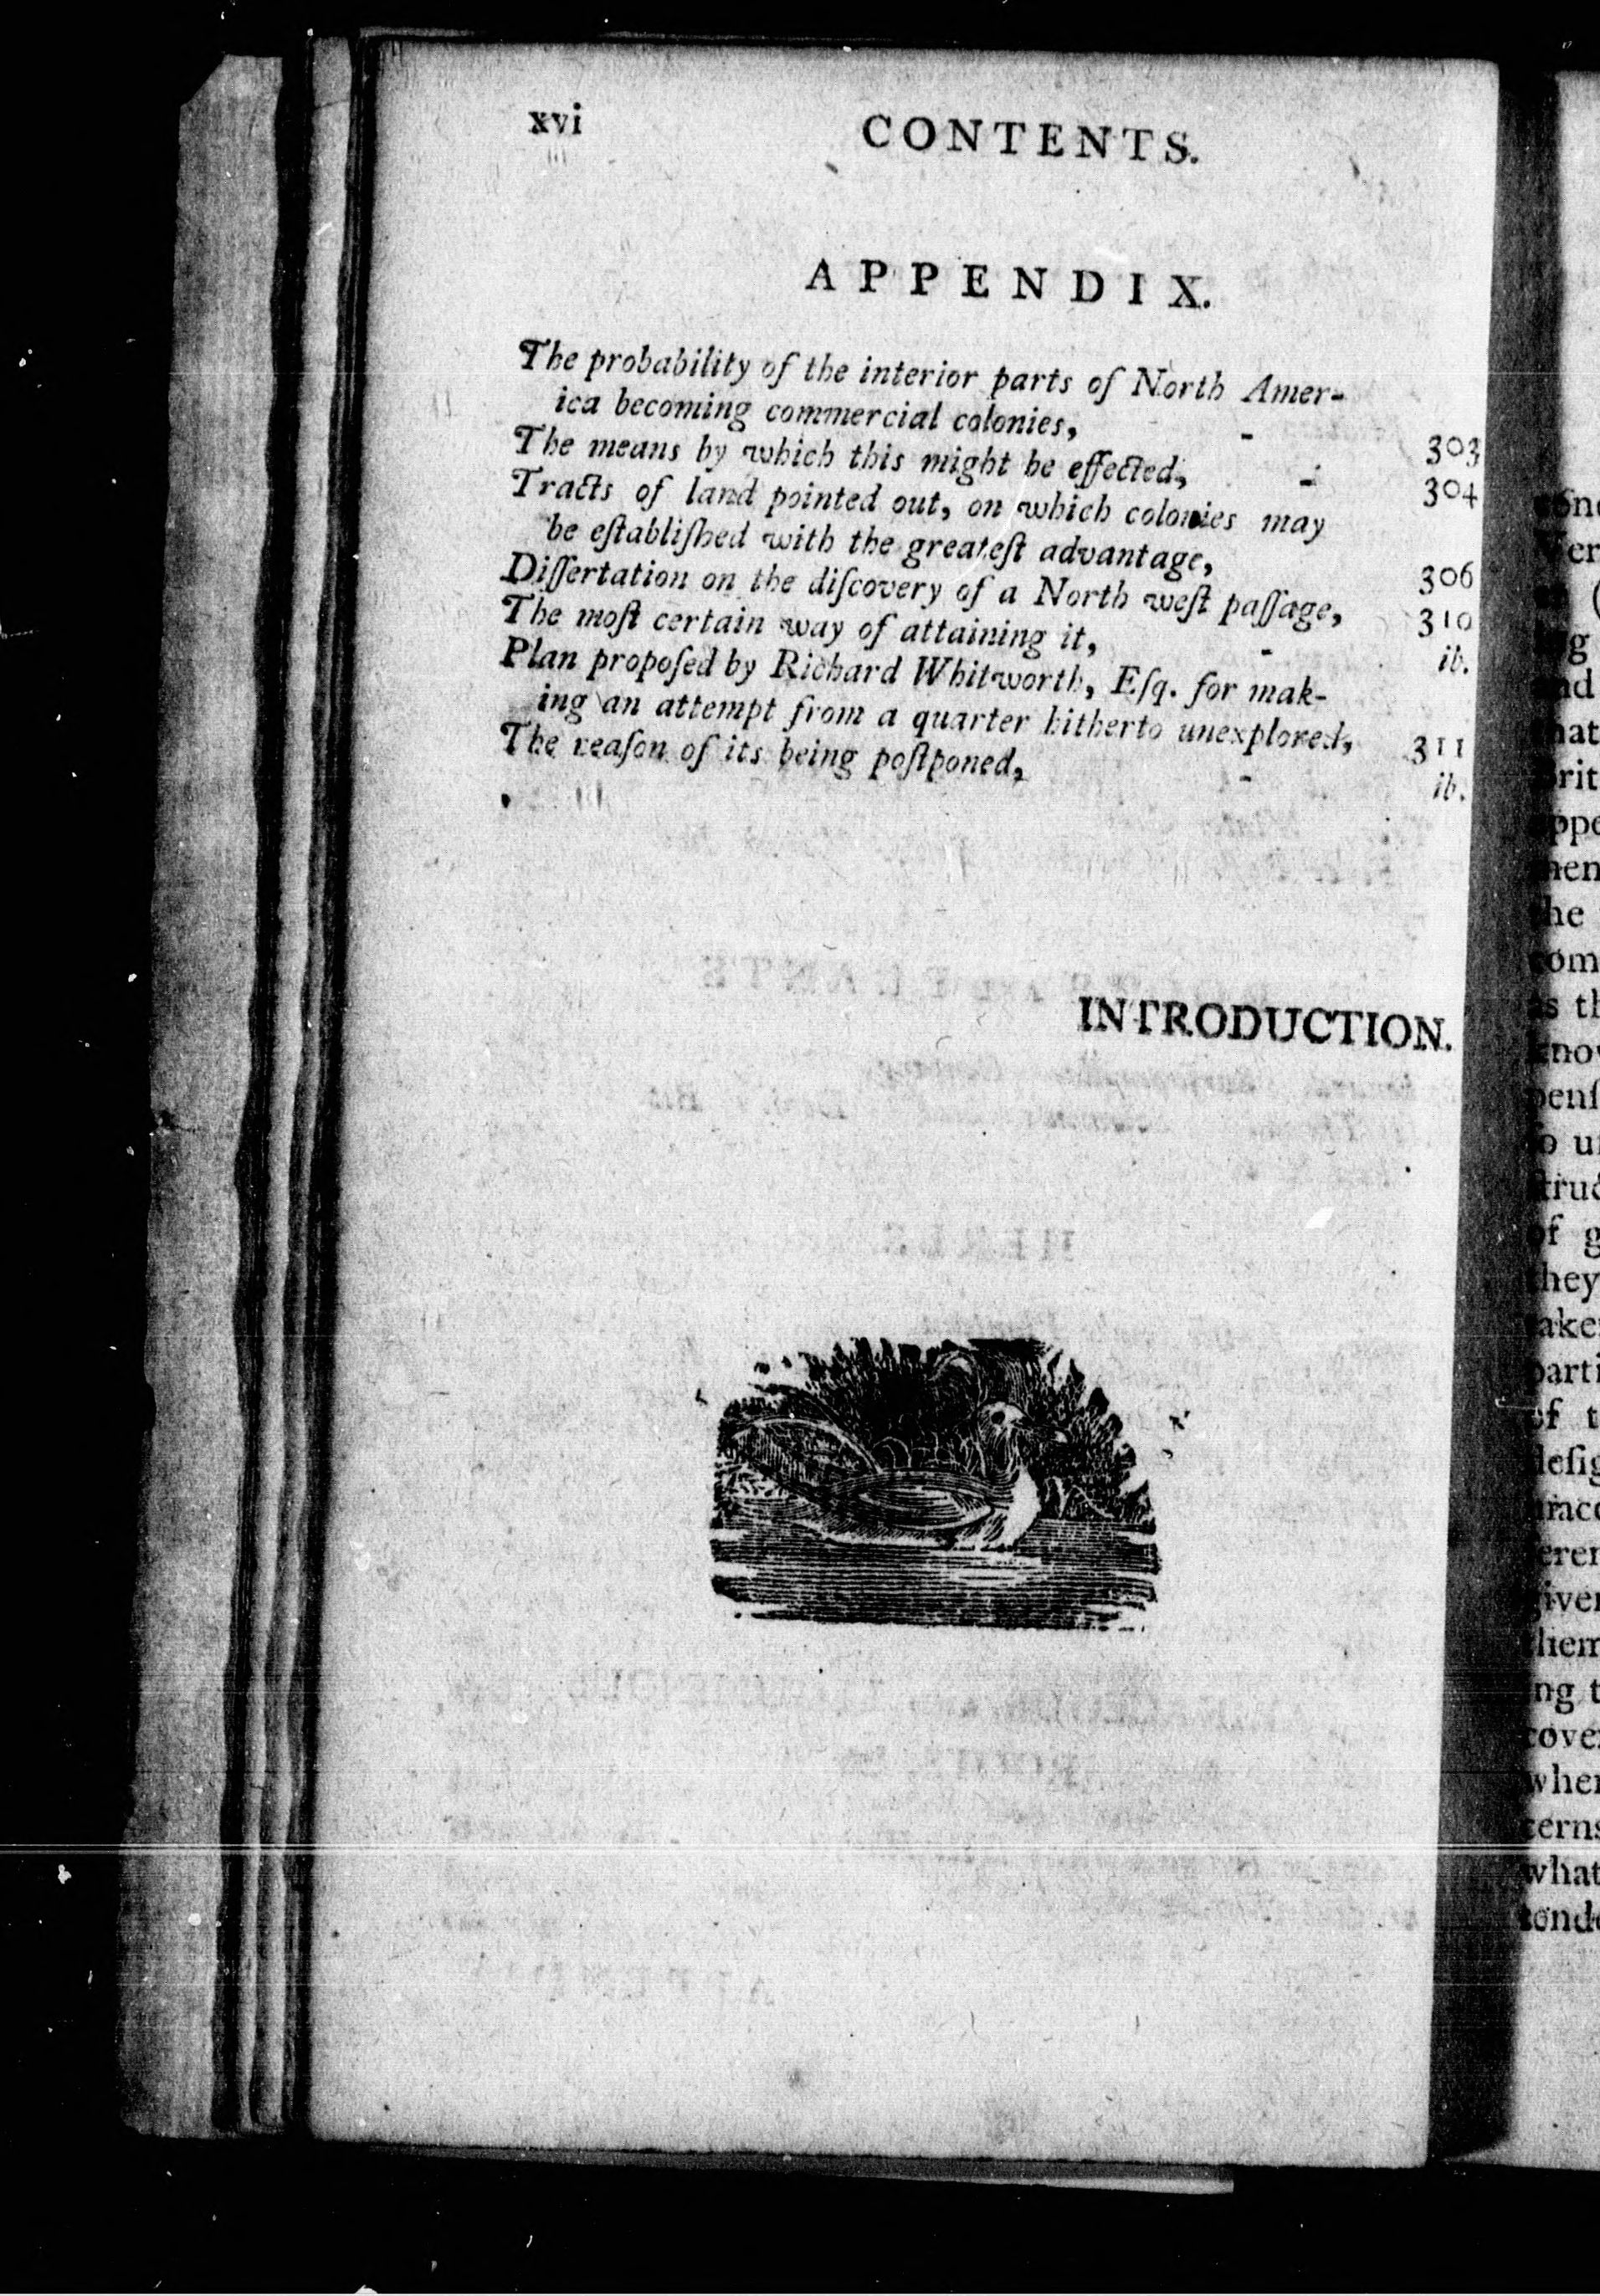 xvi
CONTENTS.
APPENDIX.
The probability of the interior parts of North Amer-
ica becoming commercial colonies, - 303
The means by which this might be effected, - 304
Tracts of land pointed out, on which colonies may
be eſtabliſhed with the greateſt advantage, 306
Diſſertation on the diſcovery of a North weſt paſſage, 310
The moſt certain way of attaining it, - ib.
Plan propoſed by Richard Whitworth, Eſq. for mak-
ing an attempt from a quarter hitherto unexplored, 311
The reaſon of its being poſtponed, - ib.
INTRODUCTION.